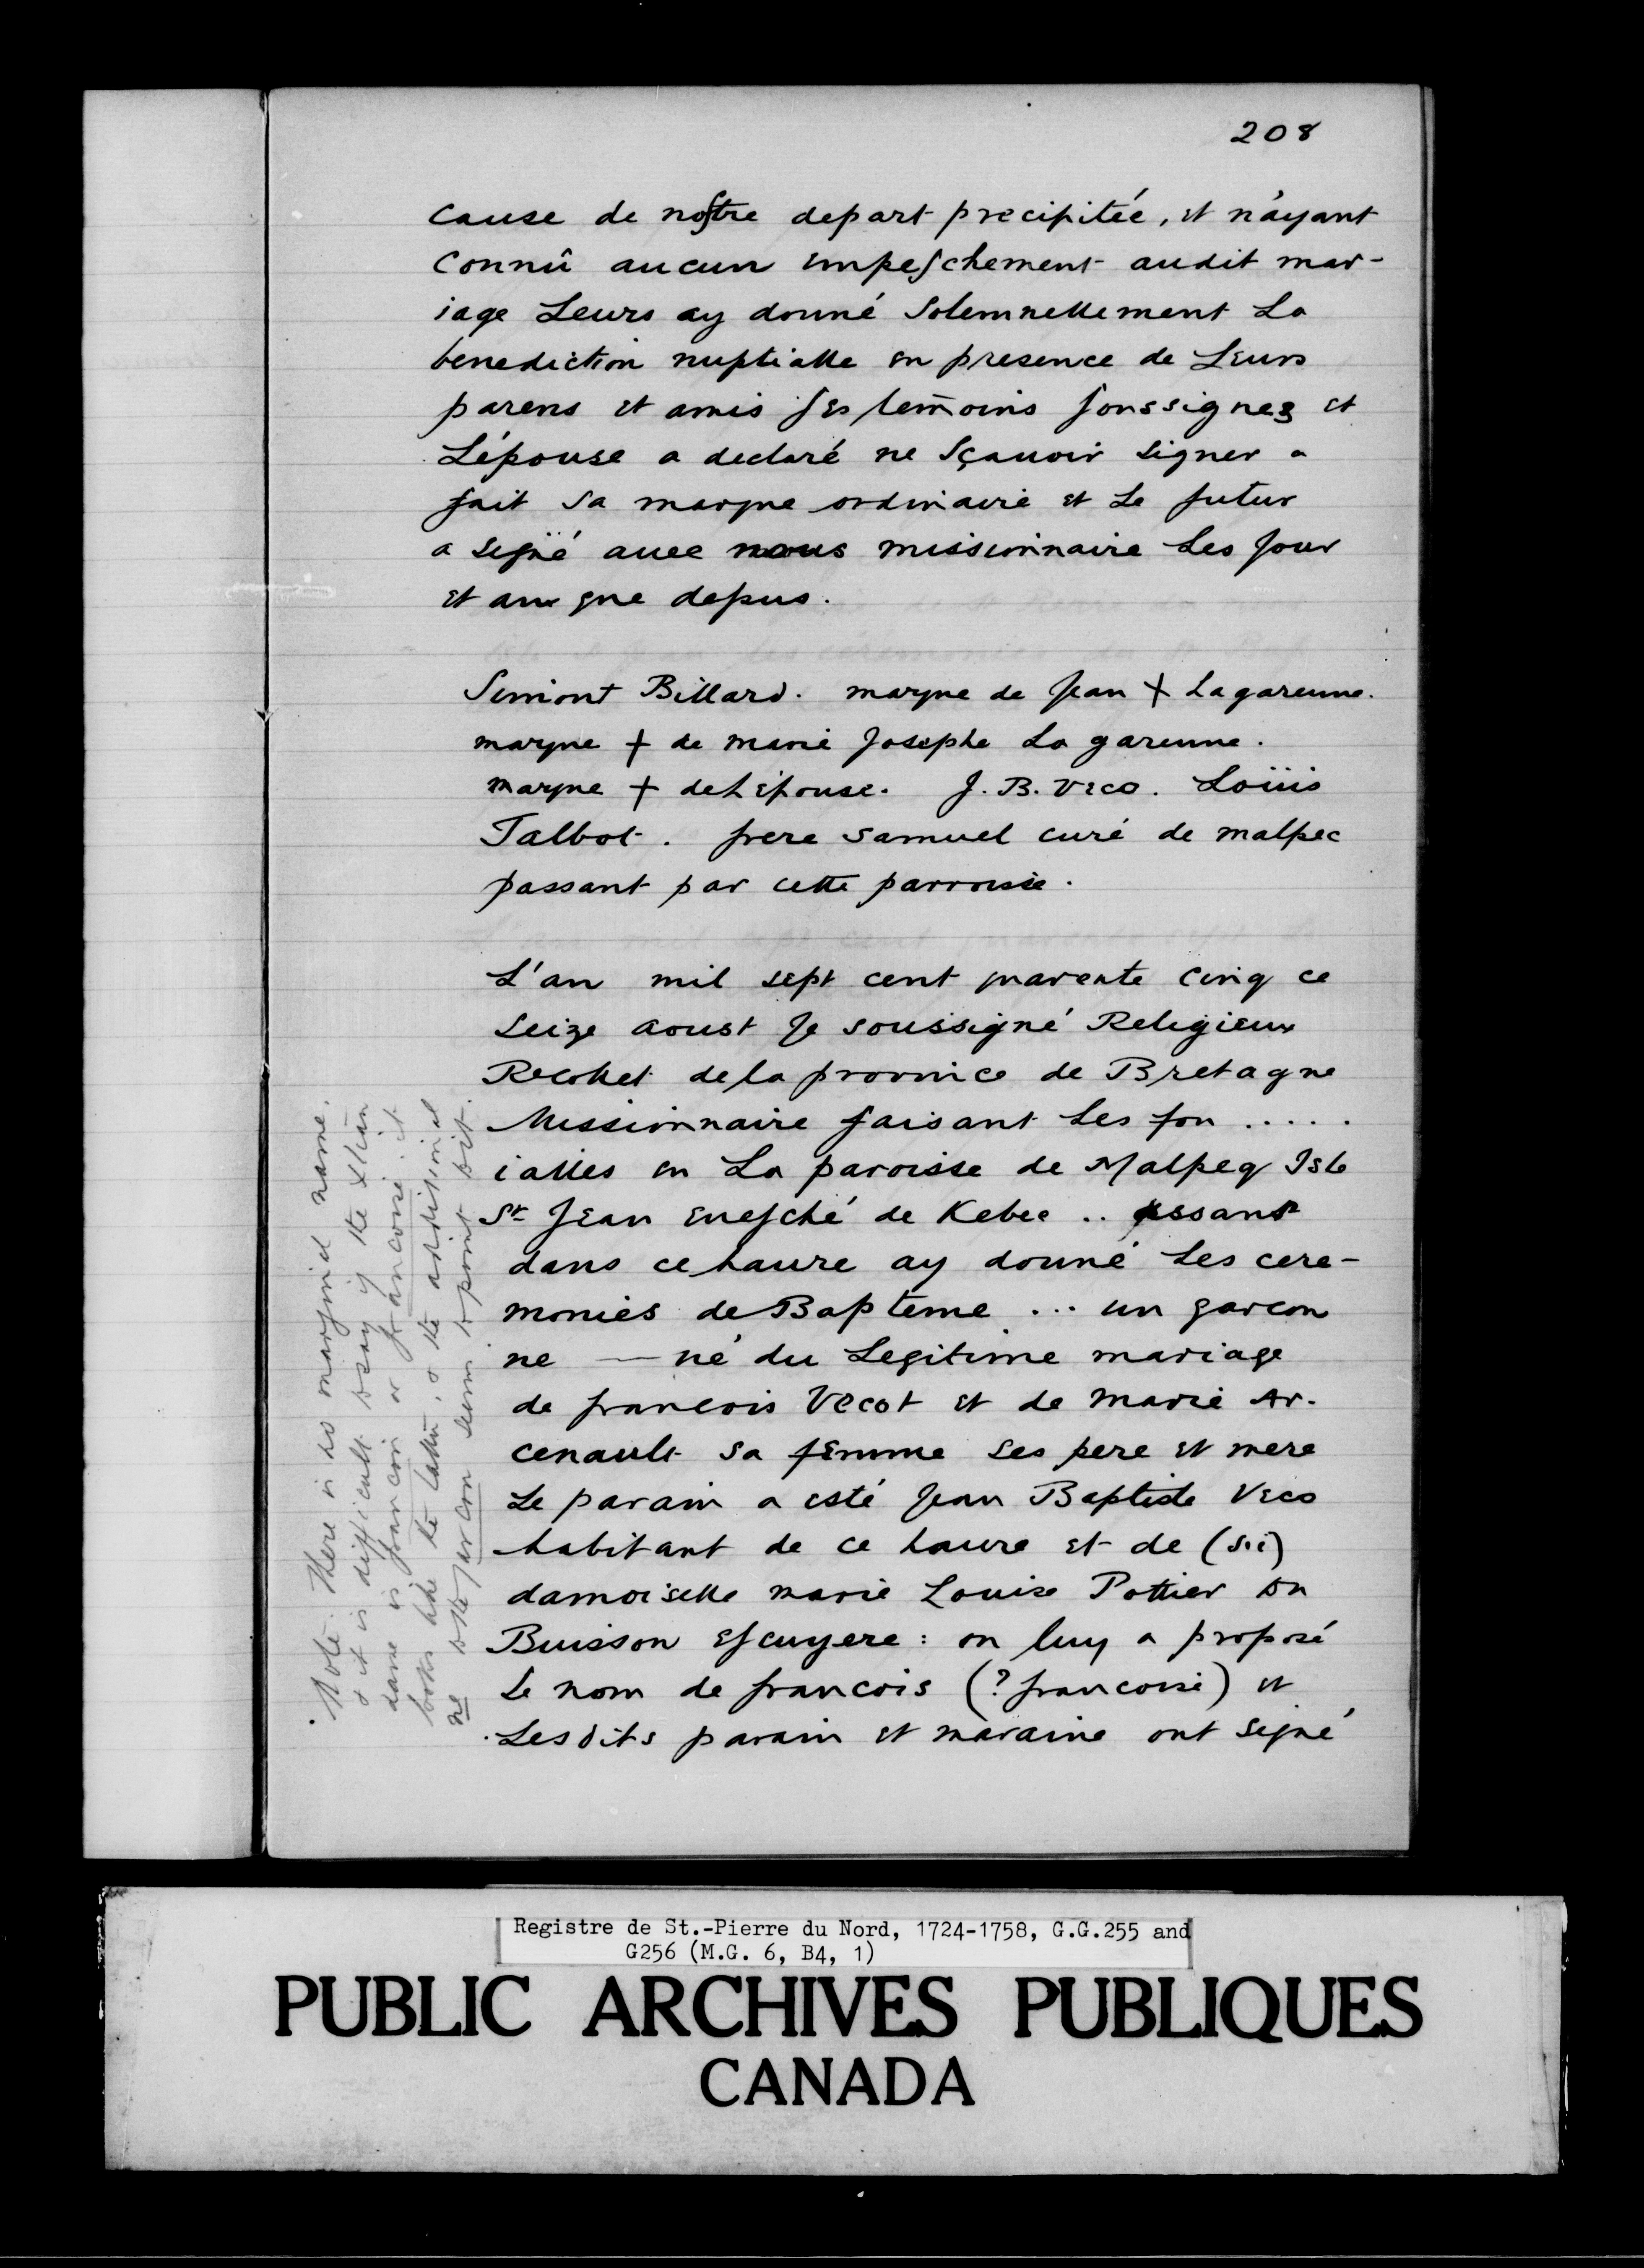 208
cause de nostre depart precipitée, et n'ayant
connû aucun empeschement audit mar-
iage Leurs ay donné solemnellement La
benediction nuptialle en presence de Leurs
parens et amis ses temoins soussignez et
L'épouse a declaré ne sçauoir signer a
fait sa marque ordinaire et Le futur
a signé auec nous missionnaire Les jour
et an que depus.
Simont Billard. marque de Jean + Lagarenne.
marque + de marie Josephe La garenne.
marque + de L'épouse. J. B. Veco. Loüis
Talbot. frere samuel curé de malpec
passant par cette parroisse.
L'an mil sept cent quarente cinq ce
seize aoust Je soussigné Religieux
Recollet de la province de Bretagne
Missionnaire faisant Les fon .....
ialles en La paroisse de Malpeq Isle
St Jean evesché de Kebec .. assant
dans ce haure ay donné Les cere-
monies de Bapteme ... un garcon
ne — né du Legitime mariage
de francois Vecot et de Marie Ar-
cenault sa femme ses pere et mere
Le parain a esté Jean Baptiste Veco
habitant de ce haure et de (sic)
damoiselle marie Louise Pottier du
Buisson escuyere: on luy a proposé
Le nom de francois (? francoise) et
Lesdits parain et maraine ont signé
Note. There is no marginal name.
& it is difficult to say if the Xtian
name is francois or francoise. it
looks like the latter, & the additional
ne to the garcon seems to point to it.
Registre de St.-Pierre du Nord, 1724-1758, G.G.255 and
G256 (M.G. 6, B4, 1)
PUBLIC ARCHIVES PUBLIQUES
CANADA